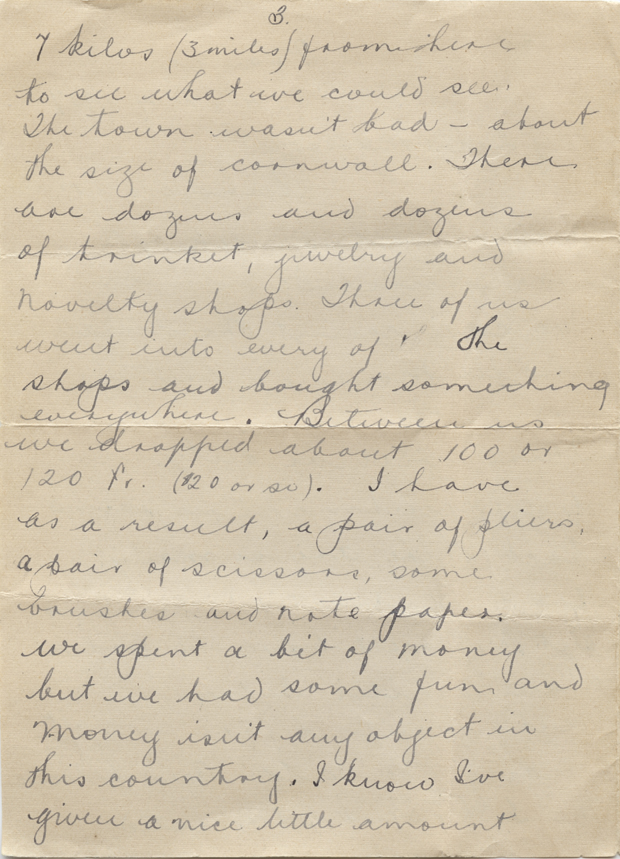 3.
7 kilos (3 miles) from here
to see what we could see.
The town wasn't bad – about
the size of cornwall. There
are dozens and dozens
of trinket, jewelry and
novelty shops. Three of us
went into every of the
shops and bought something
everywhere. Between us
we dropped about 100 or
120 Fr. ($20 or so). I have
as a result, a pair of pliers,
a pair of scissors, some
brushes and note paper.
We spent a bit of money
but we had some fun, and
money isn't any object in
this country. I know I've
given a nice little amount